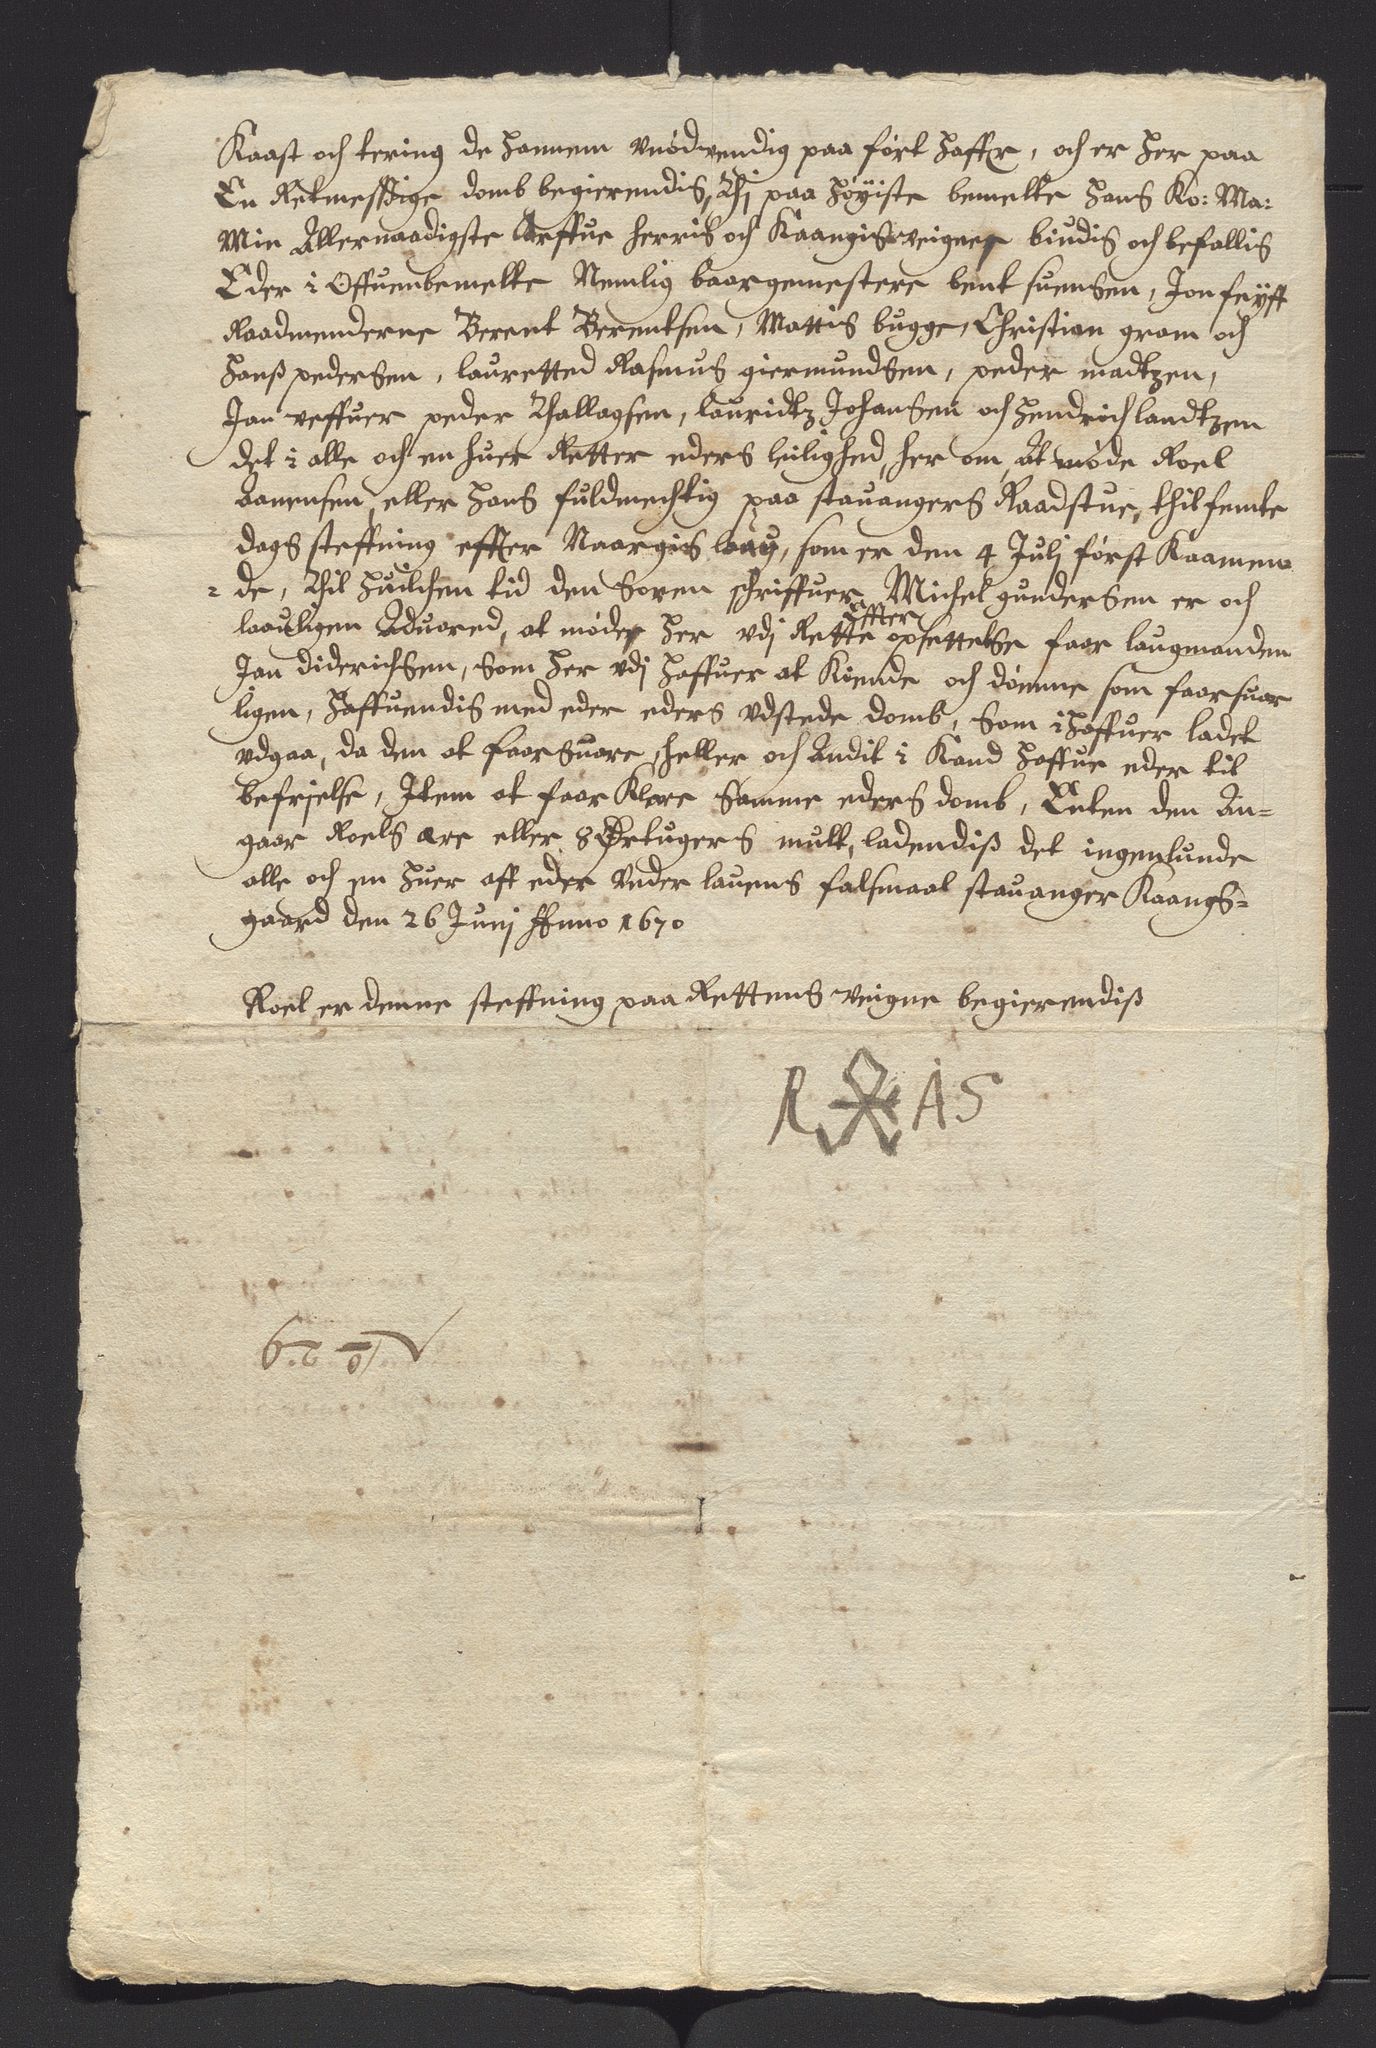 Kaast och tering de hannem vnødvendig paa ført haffr, och er her paa
En Retmessige domb begierendis, Thj paa høyiste bemelte hans Ko: Ma:
Min Allernaadigste Arffue herris och Kaangis veigne biudis och befallis
Eder i Offuenbemelte Nemlig baargemestere bent suensen, Jon feyff
Raadmenderne Berent Berentsen, Mattis bugge, Christian gram och
hanß pedersen, lauretted Rasmus giermundsen, peder madtzen,
Jan veffuer peder Thallagsen, lauridtz Johansen och hendrich laadtzen
det i alle och en huer Retter eders leilighed, her om, At møde Roel
Aanensen, eller hans fuldmechtig paa stauangers Raadstue, thil femte
dags steffning effter Naargis laau, som er den 4 Julj først Kaamen-
-de, Thil huilchen tid den Soren schriffuer Michel gundersen er och
laauligen Aduared, at møde her vdj Rette Effter opsettelse faar laugmanden
Jan diderichsen, som her vdj haffuer at Kiende och dømme som faarsuar
ligen, haffuendis med eder eders vdstede domb, Som i haffuer ladet
vdgaa, da den at faarsuare, heller och Andit i Kand haffue eder til
befrielse, Item at faar Klare samme eders domb, Enten den An-
gaar Roels ære eller 8 Ørtugers mult, ladendiß det ingenlunde
alle och en huer aff eder vnder lauens falsmaal stauanger Kaangs-
gaard den 26 Junj Anno 1670
Roel er denne steffning paa Rettens veigne begierendiß
R AS